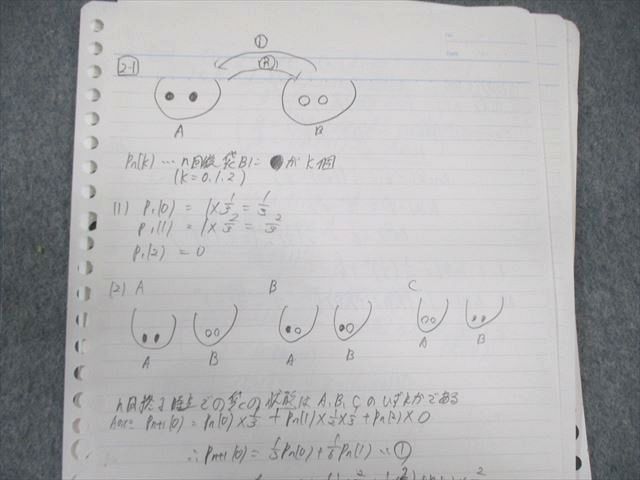 No.
Date
2-1
①
Ⓡ
A B
Pn(k) … n回後袋Bに●がk個
(k=0,1,2)
(1) P₁(0) = 1×1/3 = 1/3
P₁(1) = 1×2/3 = 2/3
P₁(2) = 0
(2) A B C
A B A B A B
の状態は A, B, C のいずれかである
Pn+1(0) = Pn(0)×1/3 + Pn(1)×1/2×1/3 + Pn(2)×0
∴ Pn+1(0) = 1/3Pn(0) + 1/6Pn(1) … ①